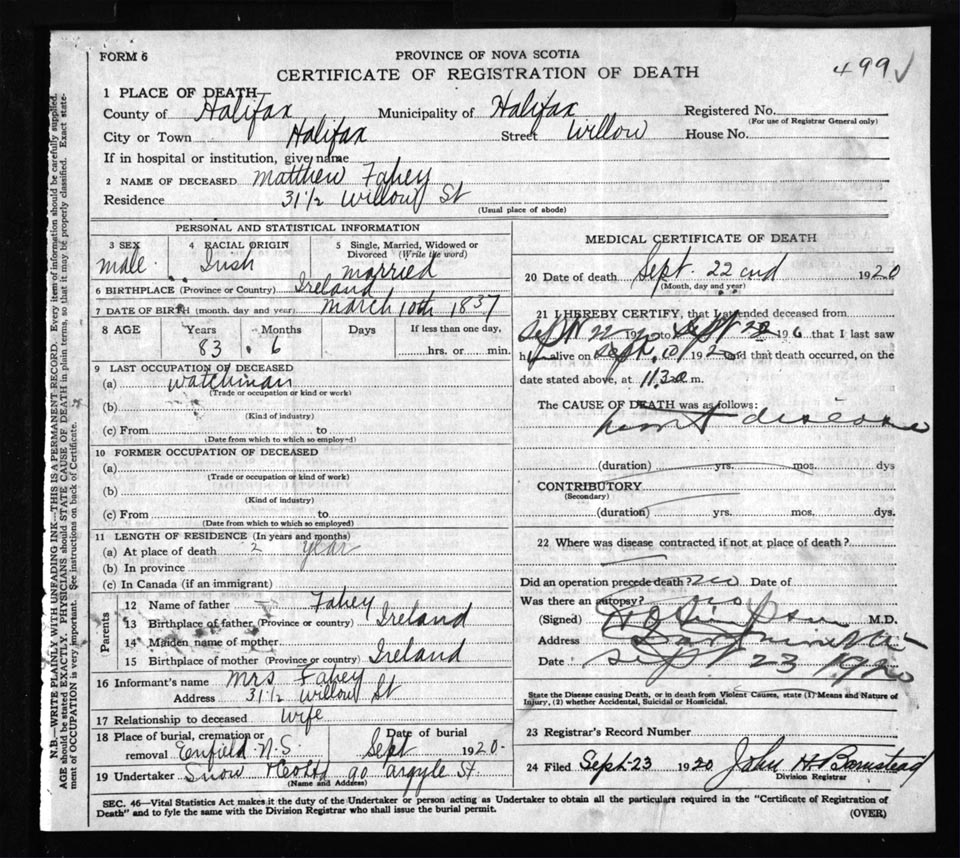 FORM 6
PROVINCE OF NOVA SCOTIA
CERTIFICATE OF REGISTRATION OF DEATH
499 ✓
1 PLACE OF DEATH
County of Halifax Municipality of Halifax Registered No.
(For use of Registrar General only)
City or Town Halifax Street Willow House No.
If in hospital or institution, give name
2 NAME OF DECEASED Matthew Fahey
Residence 31½ Willow St
(Usual place of abode)
PERSONAL AND STATISTICAL INFORMATION
3 SEX 4 RACIAL ORIGIN 5 Single, Married, Widowed or
Divorced (Write the word)
male Irish married
6 BIRTHPLACE (Province or Country) Ireland
7 DATE OF BIRTH (month, day and year) March 10th 1837
8 AGE Years Months Days If less than one day,
83 6 hrs. or min.
9 LAST OCCUPATION OF DECEASED
(a) watchman
(Trade or occupation or kind or work)
(b)
(Kind of industry)
(c) From to
(Date from which to which so employed)
10 FORMER OCCUPATION OF DECEASED
(a)
(Trade or occupation or kind of work)
(b)
(Kind of industry)
(c) From to
(Date from which to which so employed)
11 LENGTH OF RESIDENCE (In years and months)
(a) At place of death 2 year
(b) In province
(c) In Canada (if an immigrant)
Parents
12 Name of father Fahey
13 Birthplace of father (Province or country) Ireland
14 Maiden name of mother
15 Birthplace of mother (Province or country) Ireland
16 Informant's name Mrs Fahey
Address 31½ Willow St
17 Relationship to deceased wife
18 Place of burial, cremation or Date of burial
removal Enfield N.S. Sept 1920.
19 Undertaker Snow & Co Ltd 90 Argyle St.
(Name and Address)
MEDICAL CERTIFICATE OF DEATH
20 Date of death Sept. 22nd 1920
(Month, day and year)
21 I HEREBY CERTIFY, that I attended deceased from
Sept 22 1920 to Sept 22 19 that I last saw
h alive on Sept. 19 20 and that death occurred, on the
date stated above, at 11.30 m.
The CAUSE OF DEATH was as follows:
heart disease
(duration) yrs. mos. dys
CONTRIBUTORY
(Secondary)
(duration) yrs. mos. dys.
22 Where was disease contracted if not at place of death?
Did an operation precede death? no Date of
Was there an autopsy? no
(Signed) Simpson M.D.
Address
Date Sept 23 1920
State the Disease causing Death, or in death from Violent Causes, state (1) Means and Nature of
Injury, (2) whether Accidental, Suicidal or Homicidal.
23 Registrar's Record Number
24 Filed Sept-23 1920 John H Barnstead
Division Registrar
SEC. 46—Vital Statistics Act makes it the duty of the Undertaker or person acting as Undertaker to obtain all the particulars required in the "Certificate of Registration of
Death" and to fyle the same with the Division Registrar who shall issue the burial permit.
(OVER)
N.B.—WRITE PLAINLY WITH UNFADING INK—THIS IS A PERMANENT RECORD. Every item of information should be carefully supplied.
AGE should be stated EXACTLY. PHYSICIANS should STATE CAUSE OF DEATH in plain terms, so that it may be properly classified. Exact state-
ment of OCCUPATION is very important. See instructions on back of Certificate.